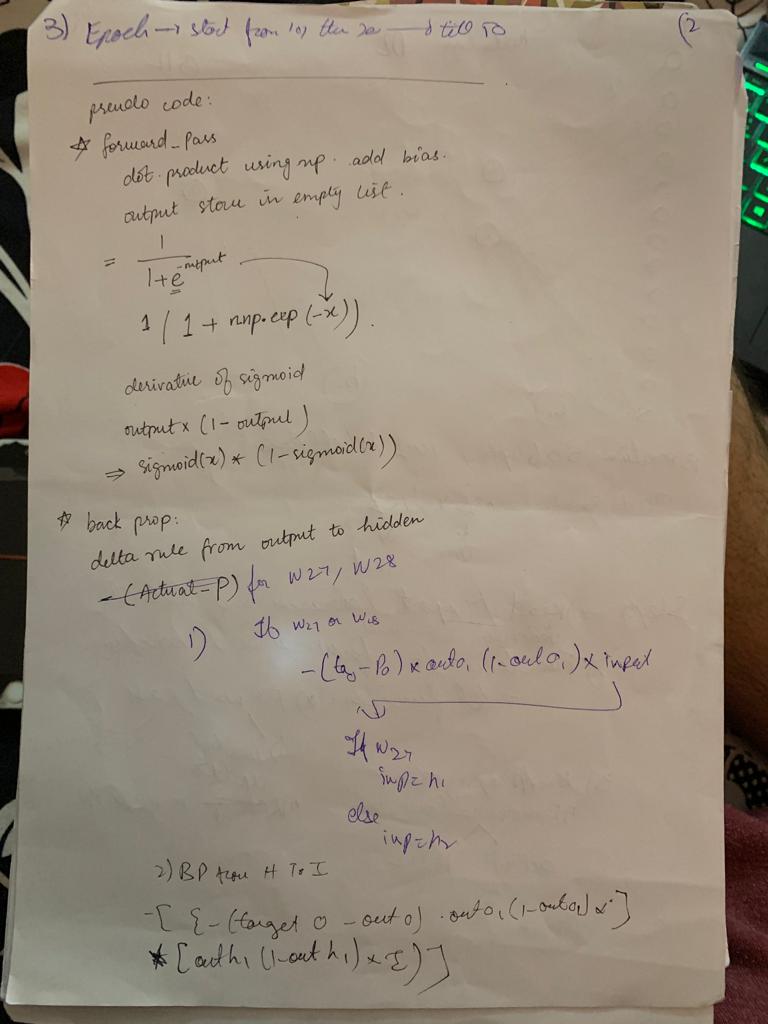 3) Epoch → start from 10, then 20 → till 50
(2
pseudo code:
☆ forward_pass
dot.product using np. add bias.
output store in empty list.
= 1 / 1+e^-output
1 / (1 + nnp.exp(-x)).
derivative of sigmoid
output x (1- output)
⇒ sigmoid(x) * (1-sigmoid(x))
☆ back prop:
delta rule from output to hidden
-(Actual-P) for W27, W28
1) If W27 or W28
-(t - P0) x outo1 (1-outo1) x input
If W27
inp=h1
else
inp=h2
2) BP from H To I
-[ {-(target 0 - out 0) . outo1 (1-outo1) x ]
* [outh1 (1-out h1) x I)]